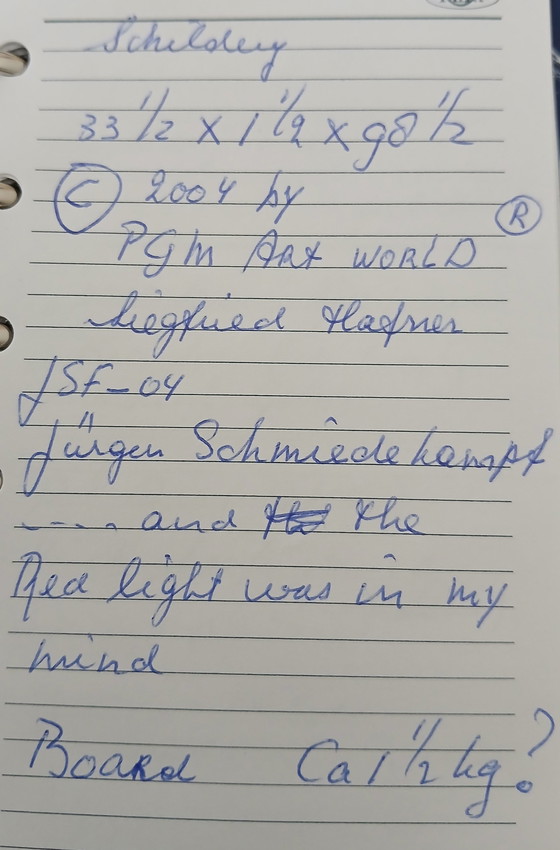 Schildery
33 1/2 x 1 1/2 x 98 1/2
© 2004 by
®
PGM ART WORLD
Siegfried Hafner
JSF-04
Jürgen Schmiedekampf
---- and the
Red light was in my
mind
Board Ca 1 1/2 kg?